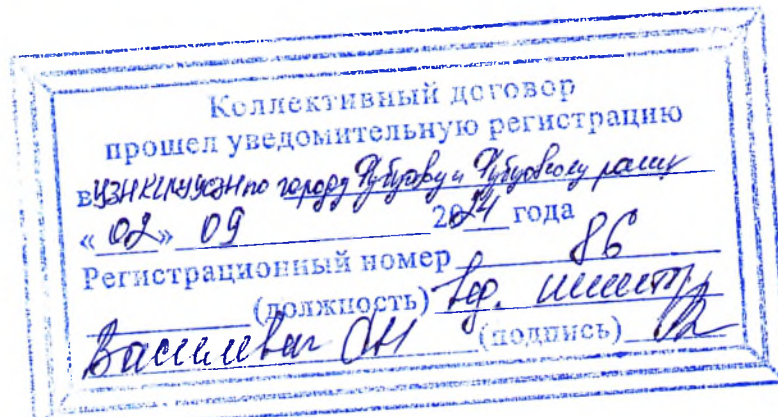 Коллективный договор
прошел уведомительную регистрацию
в УЗН КГКУ УСЗН по городу Рубцовску и Рубцовскому району
« 02 » 09 2024 года
Регистрационный номер 86
(должность) вед. инспектр
Василевич (подпись)